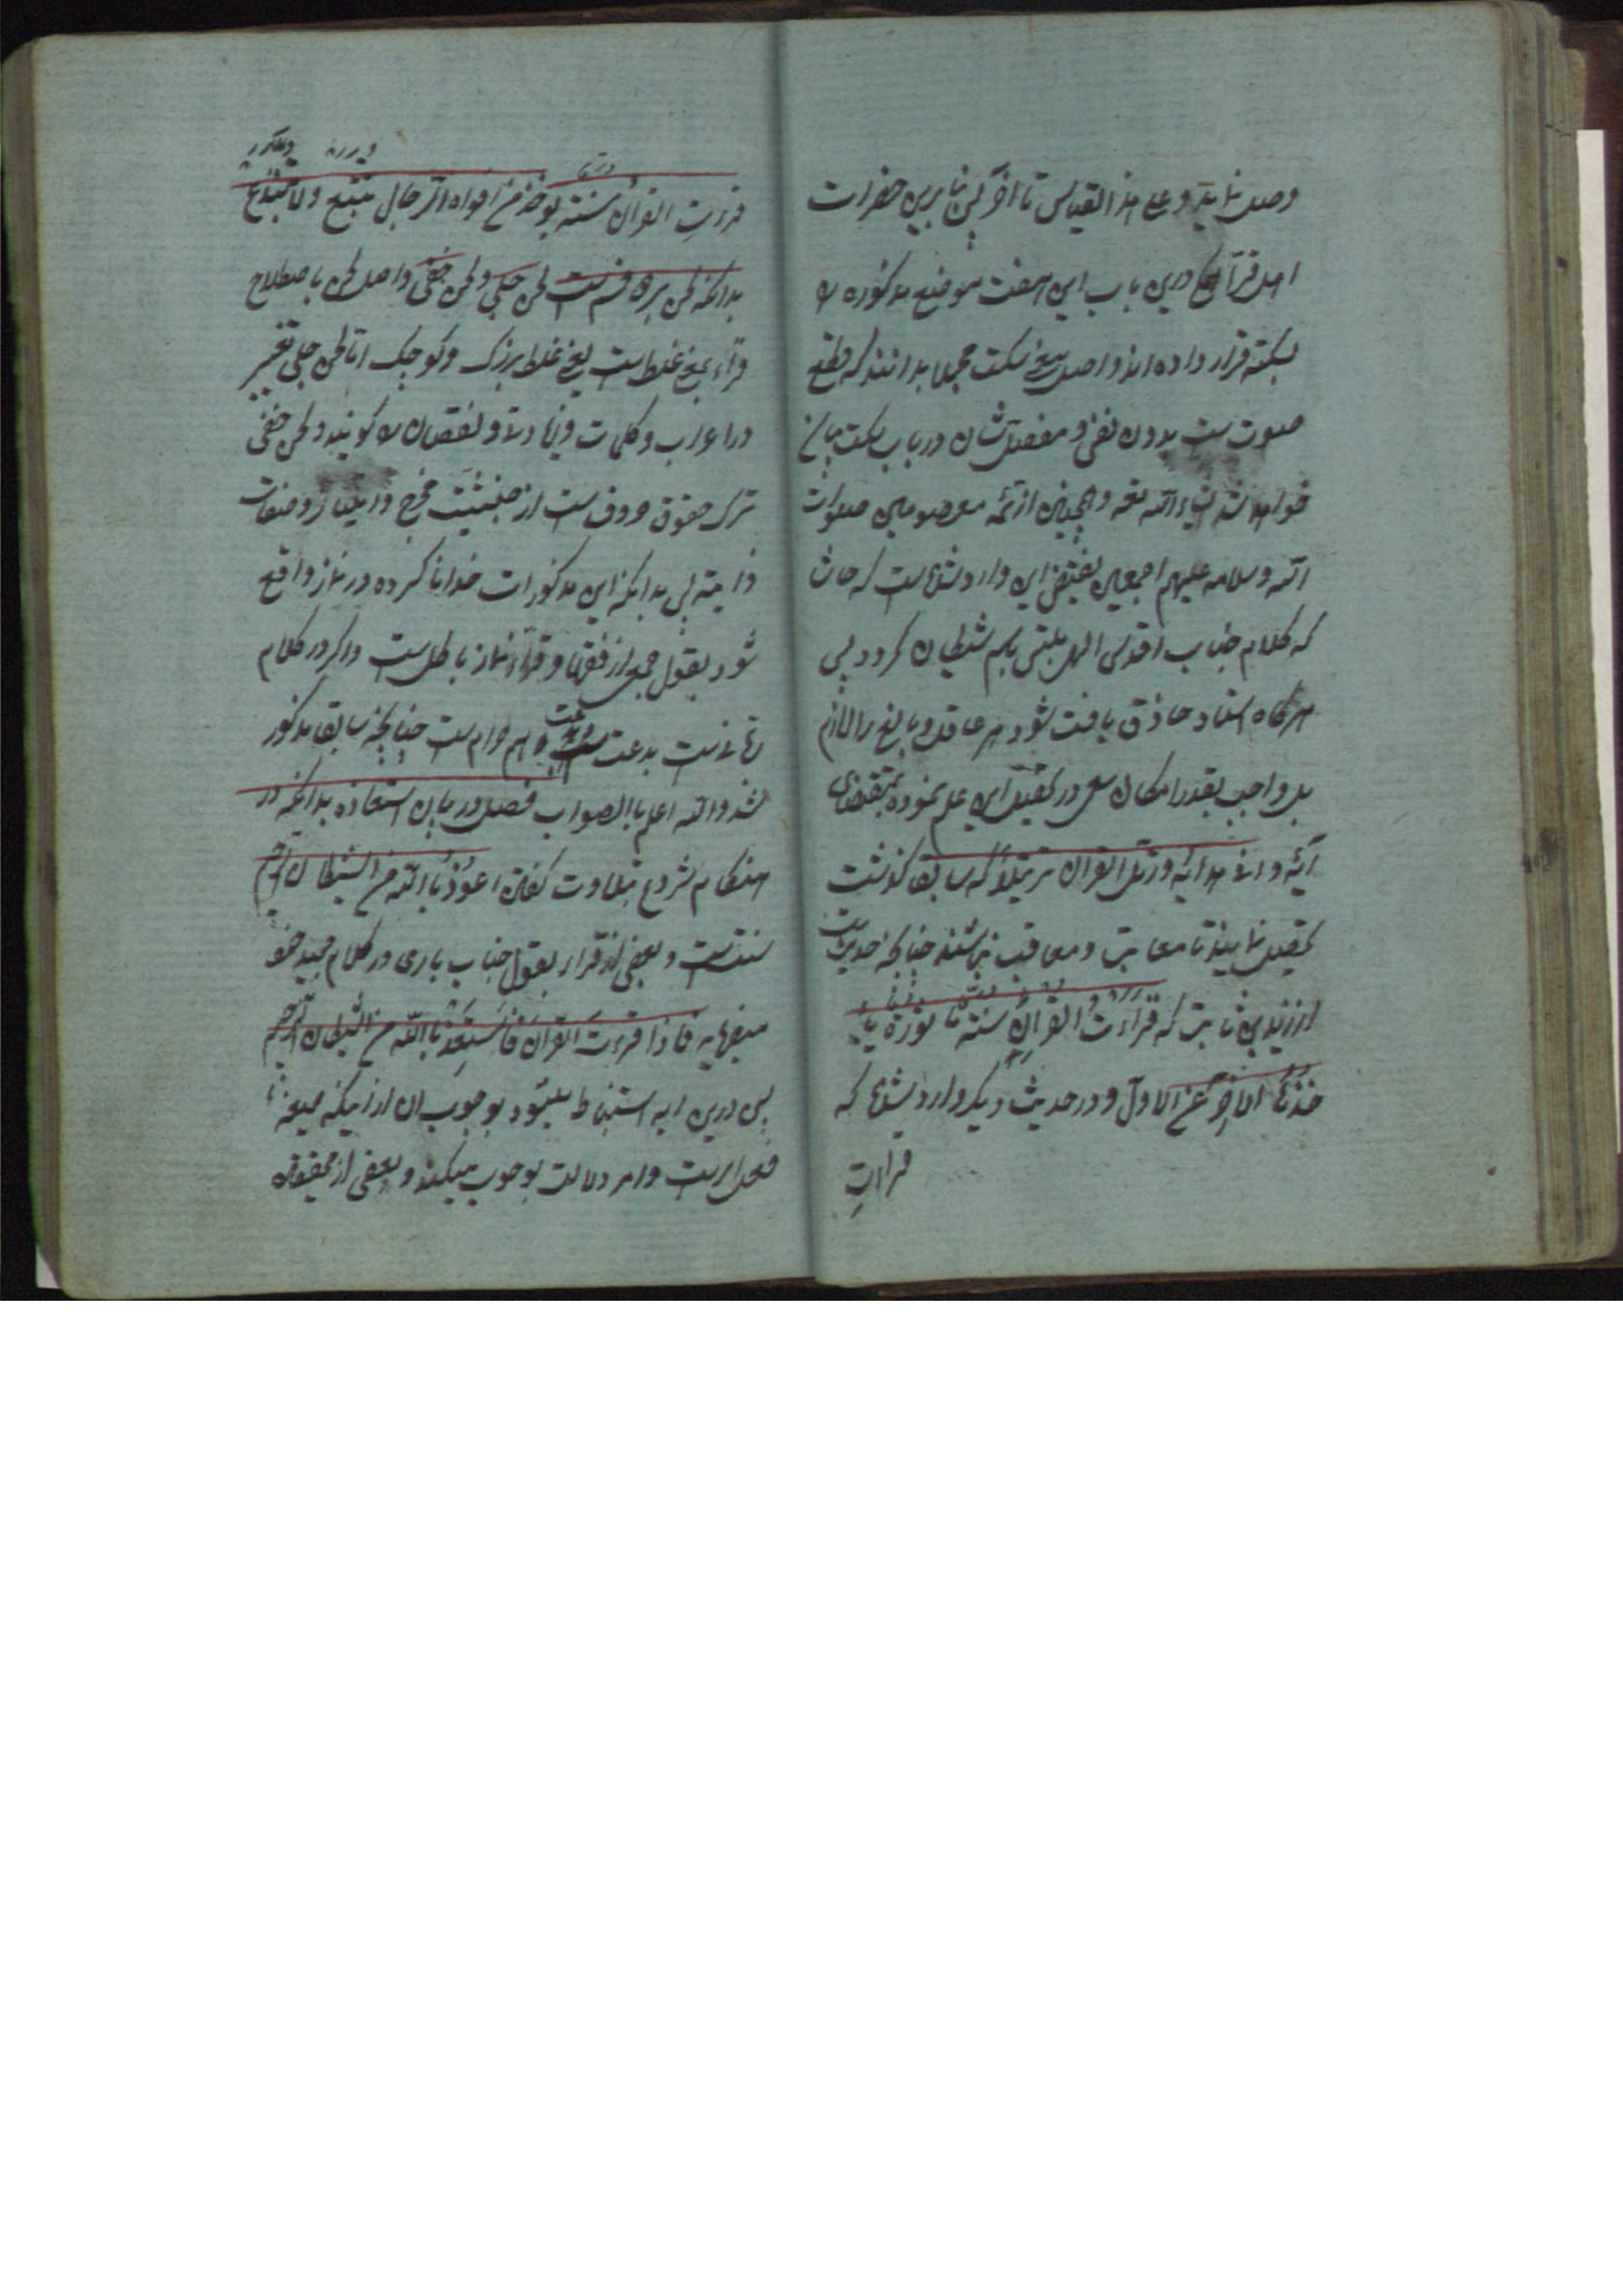 وصل نماید و علی هذا القیاس تا آخر لیکن بنابرین حضرات
اهل قرآن درین باب این هفت موضع مذکوره را
بسکته قرار داده اند و اصل معنی سکت مجملا بدانند که قطع
صوت ست بدون نفس و مفصلش در باب سکت بیان
خواهد شد انشاء الله تعه و همچنین از ائمه معصومین صلوات
الله و سلامه علیهم اجمعین این وارد شده است که حاشا
که کلام جناب اقدس الهی باسم شیطان گردد پس
هرگاه استاد حاذق یافت شود بر عاقل و بالغ را لازم
بل واجب بقدر امکان سعی در تحصیل این علم نموده بمقتضای
آیه ورتل القرآن ترتیلا که سابقا گذشت
تحصیل نمایند تا معاتب و معاقب نباشند چنانچه حدیث
از زید بن ثابت که قراءت القرآن سنة
عن الاول و در حدیث دیگر وارد شده که
قراءتِ
قراءتِ القرآن سنة یوخذ من افواه الرجال متبع ولا مبتدع
بدانکه لحن بردو قسم ست لحن جلی و لحن خفی و اصل لحن باصطلاح
قراء بمعنی غلط است یعنی غلط بزرگ و کوچک اما لحن جلی تغییر
در اعراب و کلمات و زیادتی و نقصان را گویند و لحن خفی
ترک حقوق حروف ست از حیثیت مخرج و صفات
ذاتیه پس بدانکه این مذکورات خدا ناکرده در نماز واقع
شود بقول جمعی از فقها و قراء نماز باطل ست و اگر در کلام
بدعت ست هم حرام ست چنانچه سابقا مذکور
شد والله اعلم باالصواب فصل در بیان استعاذه بدانکه در
هنگام شروع تبلاوت گفتن اعوذ باالله من الشیطان الرجیم
سنت ست و بعضی از قراء بقول جناب باری در کلام مجید خود
میفرماید فاذا قرءت القرآن فاستعذ باالله من الشیطان الرجیم
پس درین آیه استنباط میشود بوجوب آن از اینکه صیغه
فعل امرست و امر دلالت بوجوب میکند و بعضی از محققین